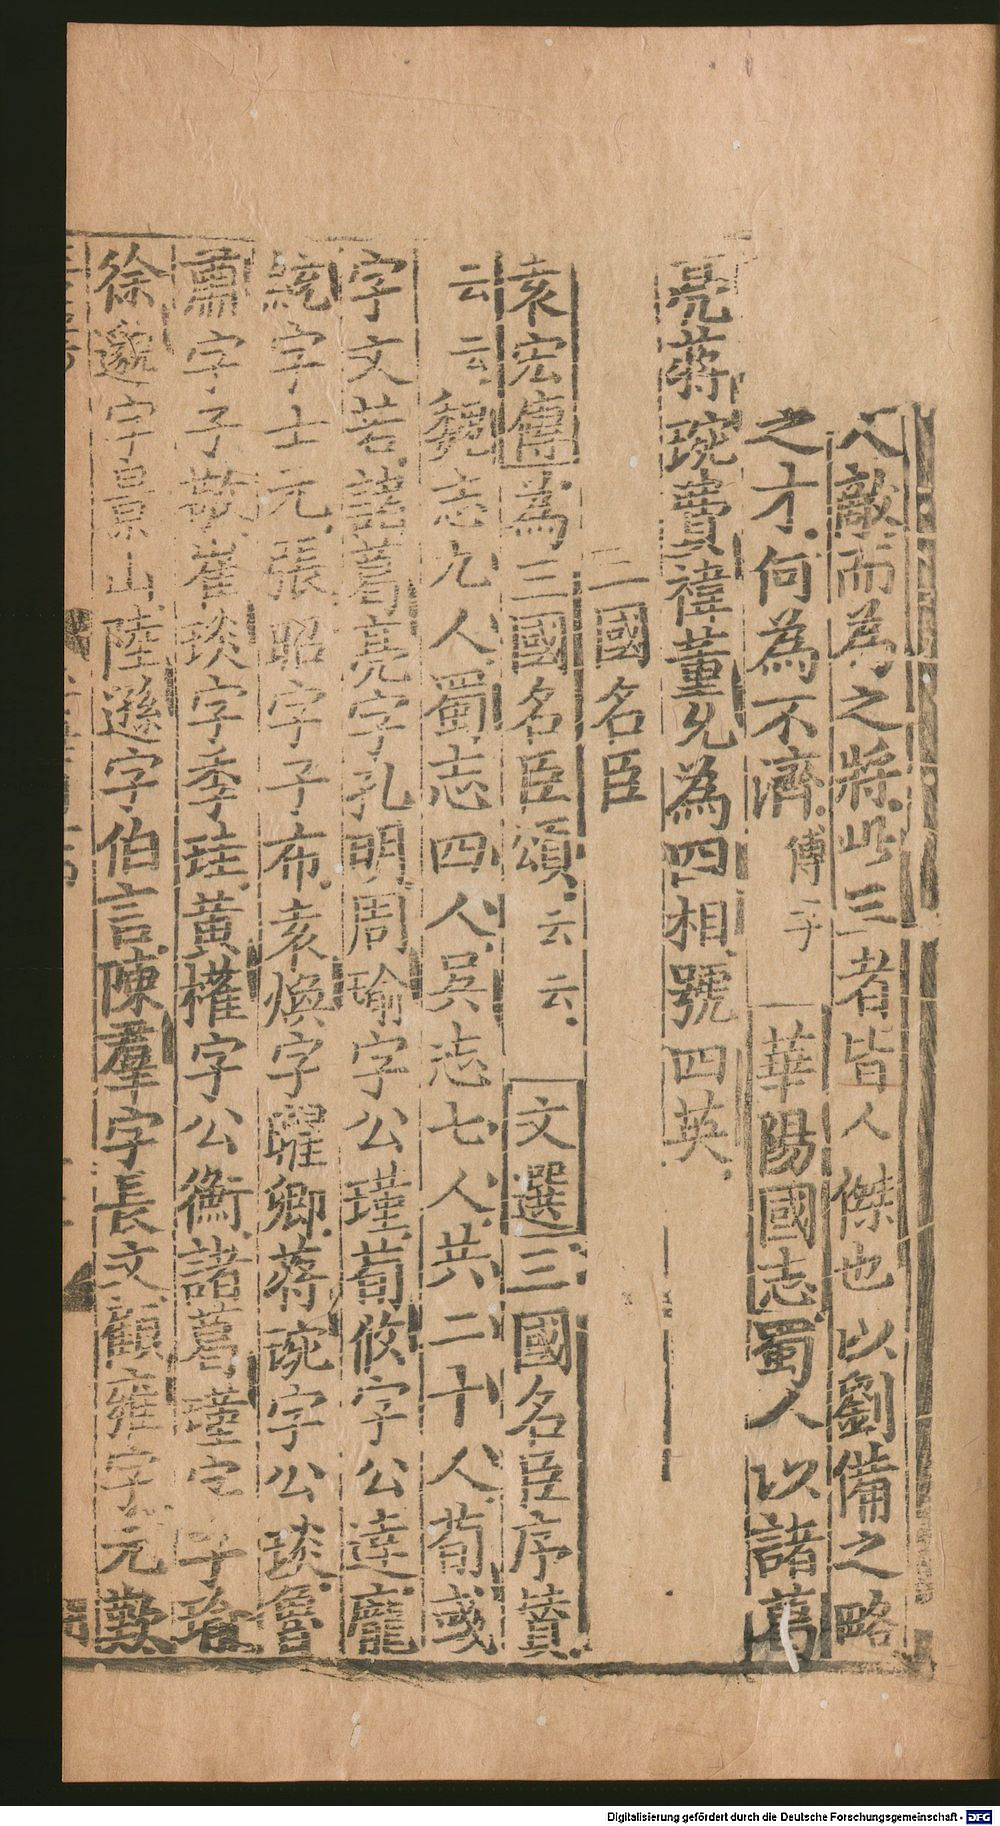 人敵而為之將此三者皆人傑也以劉備之略
之才何為不濟傅子 華陽國志蜀人以諸葛
亮蔣琬費禕董允為四相號四英
三國名臣
袁宏傳為三國名臣頌云云 文選三國名臣序贊
云云魏志九人蜀志四人吳志七人共二十人荀彧
字文若諸葛亮字孔明周瑜字公瑾荀攸字公達龐
統字士元張昭字子布袁煥字曜卿蔣琬字公琰魯
肅字子敬崔琰字季珪黃權字公衡諸葛瑾字子瑜
徐邈字景山陸遜字伯言陳羣字長文顧雍字元歎
Digitalisierung gefördert durch die Deutsche Forschungsgemeinschaft - DFG